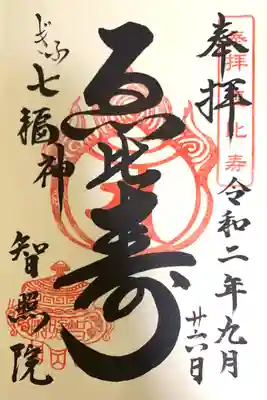 奉拝
令和二年九月
廿六日
恵比寿
ぎふ七福神
智照院